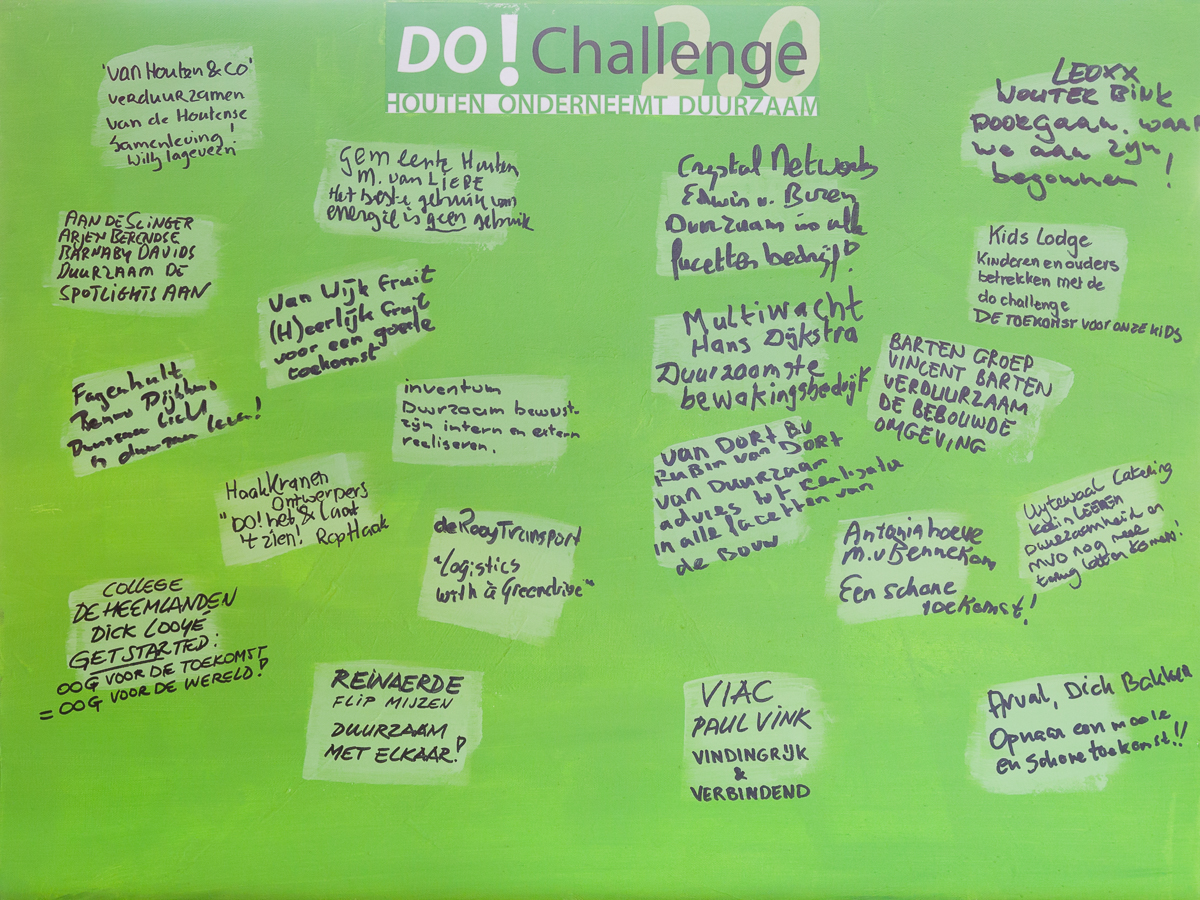 DO! Challenge 2.0
HOUTEN ONDERNEEMT DUURZAAM
'van Houten & Co'
verduurzamen
van de Houtense
samenleving!
Willy Lagevern
Gemeente Houten
M. van Liere
Het beste gebruik van
energie is geen gebruik
Crystal Networks
Edwin v. Buren
Duurzaam in alle
facetten bedrijf!
LEOXX
WOUTER BINK
Doorgaan, waar
we aan zijn
begonnen!
AAN DE SLINGER
ARJEN BERENDSE
BARNABY DAVIDS
DUURZAAM DE
SPOTLIGHTS AAN
Van Wijk Fruit
(H)eerlijk fruit
voor een goede
toekomst
Kids Lodge
Kinderen en ouders
betrekken met de
do challenge
DE TOEKOMST VOOR ONZE KIDS
Multiwacht
Hans Dijkstra
Duurzaamste
bewakingsbedrijf
BARTEN GROEP
VINCENT BARTEN
VERDUURZAAM
DE BEBOUWDE
OMGEVING
Fagerhult
Duurzaam licht
is duurzaam leven!
inventum
Duurzaam bewust-
zijn intern en extern
realiseren.
van DORT BV
RUBIN van DORT
van DUURZAAM
advies tot realisatie
in alle facetten van
de Bouw
HaakKranen
Ontwerpers
"DO! het, & laat
't zien! Rop Haak
de Rooy Transport
"Logistics
with a Greendrive"
Antoniahoeve
M. v Bennekom
Een schone
toekomst!
Uytewaal Catering
Duurzaamheid en
MVO nog meer
terug laten komen!
COLLEGE
DE HEEMLANDEN
DICK LOOYÉ
GET STARTED:
OOG VOOR DE TOEKOMST
= OOG VOOR DE WERELD!
REINAERDE
FLIP MIJZEN
DUURZAAM
MET ELKAAR!
VIAC
PAUL VINK
VINDINGRIJK
&
VERBINDEND
Arval, Dick Bakker
Opnaar een mooie
en schone toekomst!!